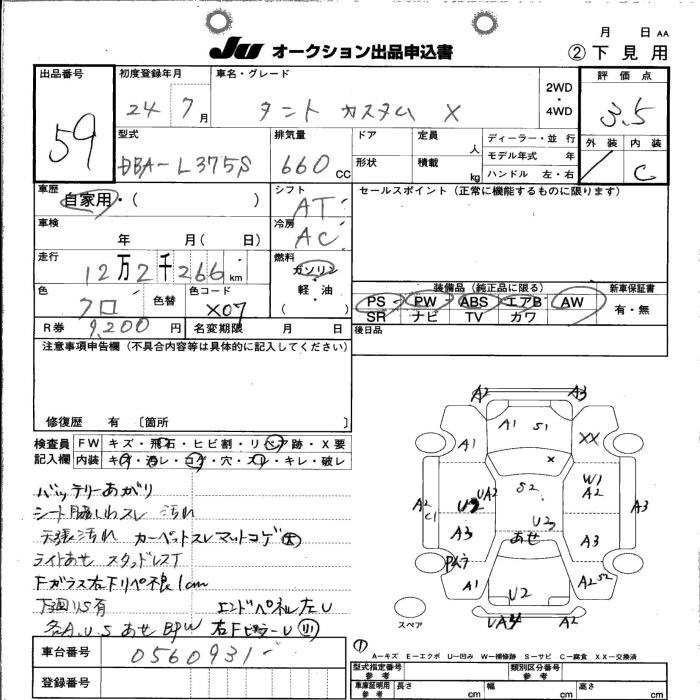 月 日 AA
JU オークション出品申込書 ②下見用
出品番号 初度登録年月 車名・グレード 2WD・4WD 評価点
59 24 7月 タント カスタム X 3.5
型式 排気量 ドア 定員 人 ディーラー・並行 外装 内装
DBA-L375S 660cc 形状 積載 kg モデル年式 年 C
ハンドル 左・右
車歴 シフト セールスポイント(正常に機能するものに限ります)
自家用・( ) AT
車検 冷房
年 月( 日) AC
走行 燃料
12万2千266km ガソリン
軽・油
( )
色 色替 色コード 装備品(純正品に限る) 新車保証書
クロ X07 PS PW ABS エアB AW 有・無
SR ナビ TV カワ
R券 9,200円 名変期限 月 日 後日品
注意事項申告欄(不具合内容等は具体的に記入してください)
修復歴 有 〔箇所 〕
検査員 FW キズ・飛石・ヒビ割・リペア跡・X要
記入欄 内装 キズ・汚レ・コゲ・穴・スレ・キレ・破レ
バッテリーあがり
シート スレ 汚れ
天張汚れ カーペットスレ マットコゲ 大
ライトあせ スタッドレスT
Fガラス右下リペ不良1cm
下回りS有 エンドパネル左U
各A,U,S あせ BPW 右FピラーU 小
A2 A3
A1 S1
A1 XX
X
W1
A2
S2
A2 UA2 A3
C1 U2
U3
A3 あせ A3
A1 U2 A2 S2
A2
スペア
A−キズ E−エクボ U−凹み W−補修跡 S−サビ C−腐食 XX−交換済
車台番号 0560931
登録番号
型式指定番号 参考 類別区分番号 参考
車庫証明用 参考 長さ cm 幅 cm 高さ cm